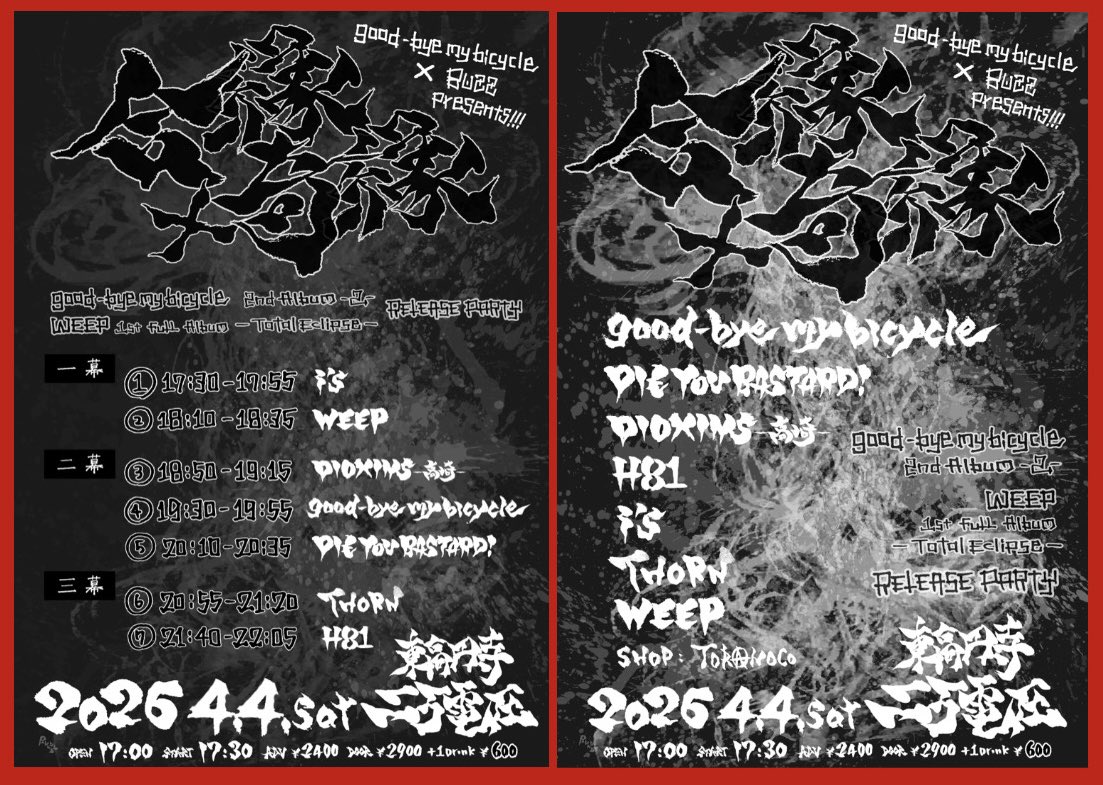 good-bye my bicycle
× BUZZ
presents!!!
合縁
奇縁
good-bye my bicycle 2nd Album
WEEP 1st full Album -Total Eclipse-
RELEASE PARTY
一幕
① 17:30-17:55 i's
② 18:10-18:35 WEEP
二幕
③ 18:50-19:15 DIOXINS -高崎-
④ 19:30-19:55 good-bye my bicycle
⑤ 20:10-20:35 DIE YOU BASTARD!
三幕
⑥ 20:55-21:20 THORN
⑦ 21:40-22:05 H81
2026 4.4.sat
東高円寺
二万電圧
OPEN 17:00 START 17:30 ADV ¥2400 DOOR ¥2900 +1Drink ¥600
good-bye my bicycle
× BUZZ
presents!!!
合縁
奇縁
good-bye my bicycle
DIE YOU BASTARD!
DIOXINS -高崎-
H81
i's
THORN
WEEP
SHOP:
good-bye my bicycle
2nd Album
WEEP
1st full Album
-Total Eclipse-
RELEASE PARTY
2026 4.4.sat
東高円寺
二万電圧
OPEN 17:00 START 17:30 ADV ¥2400 DOOR ¥2900 +1Drink ¥600